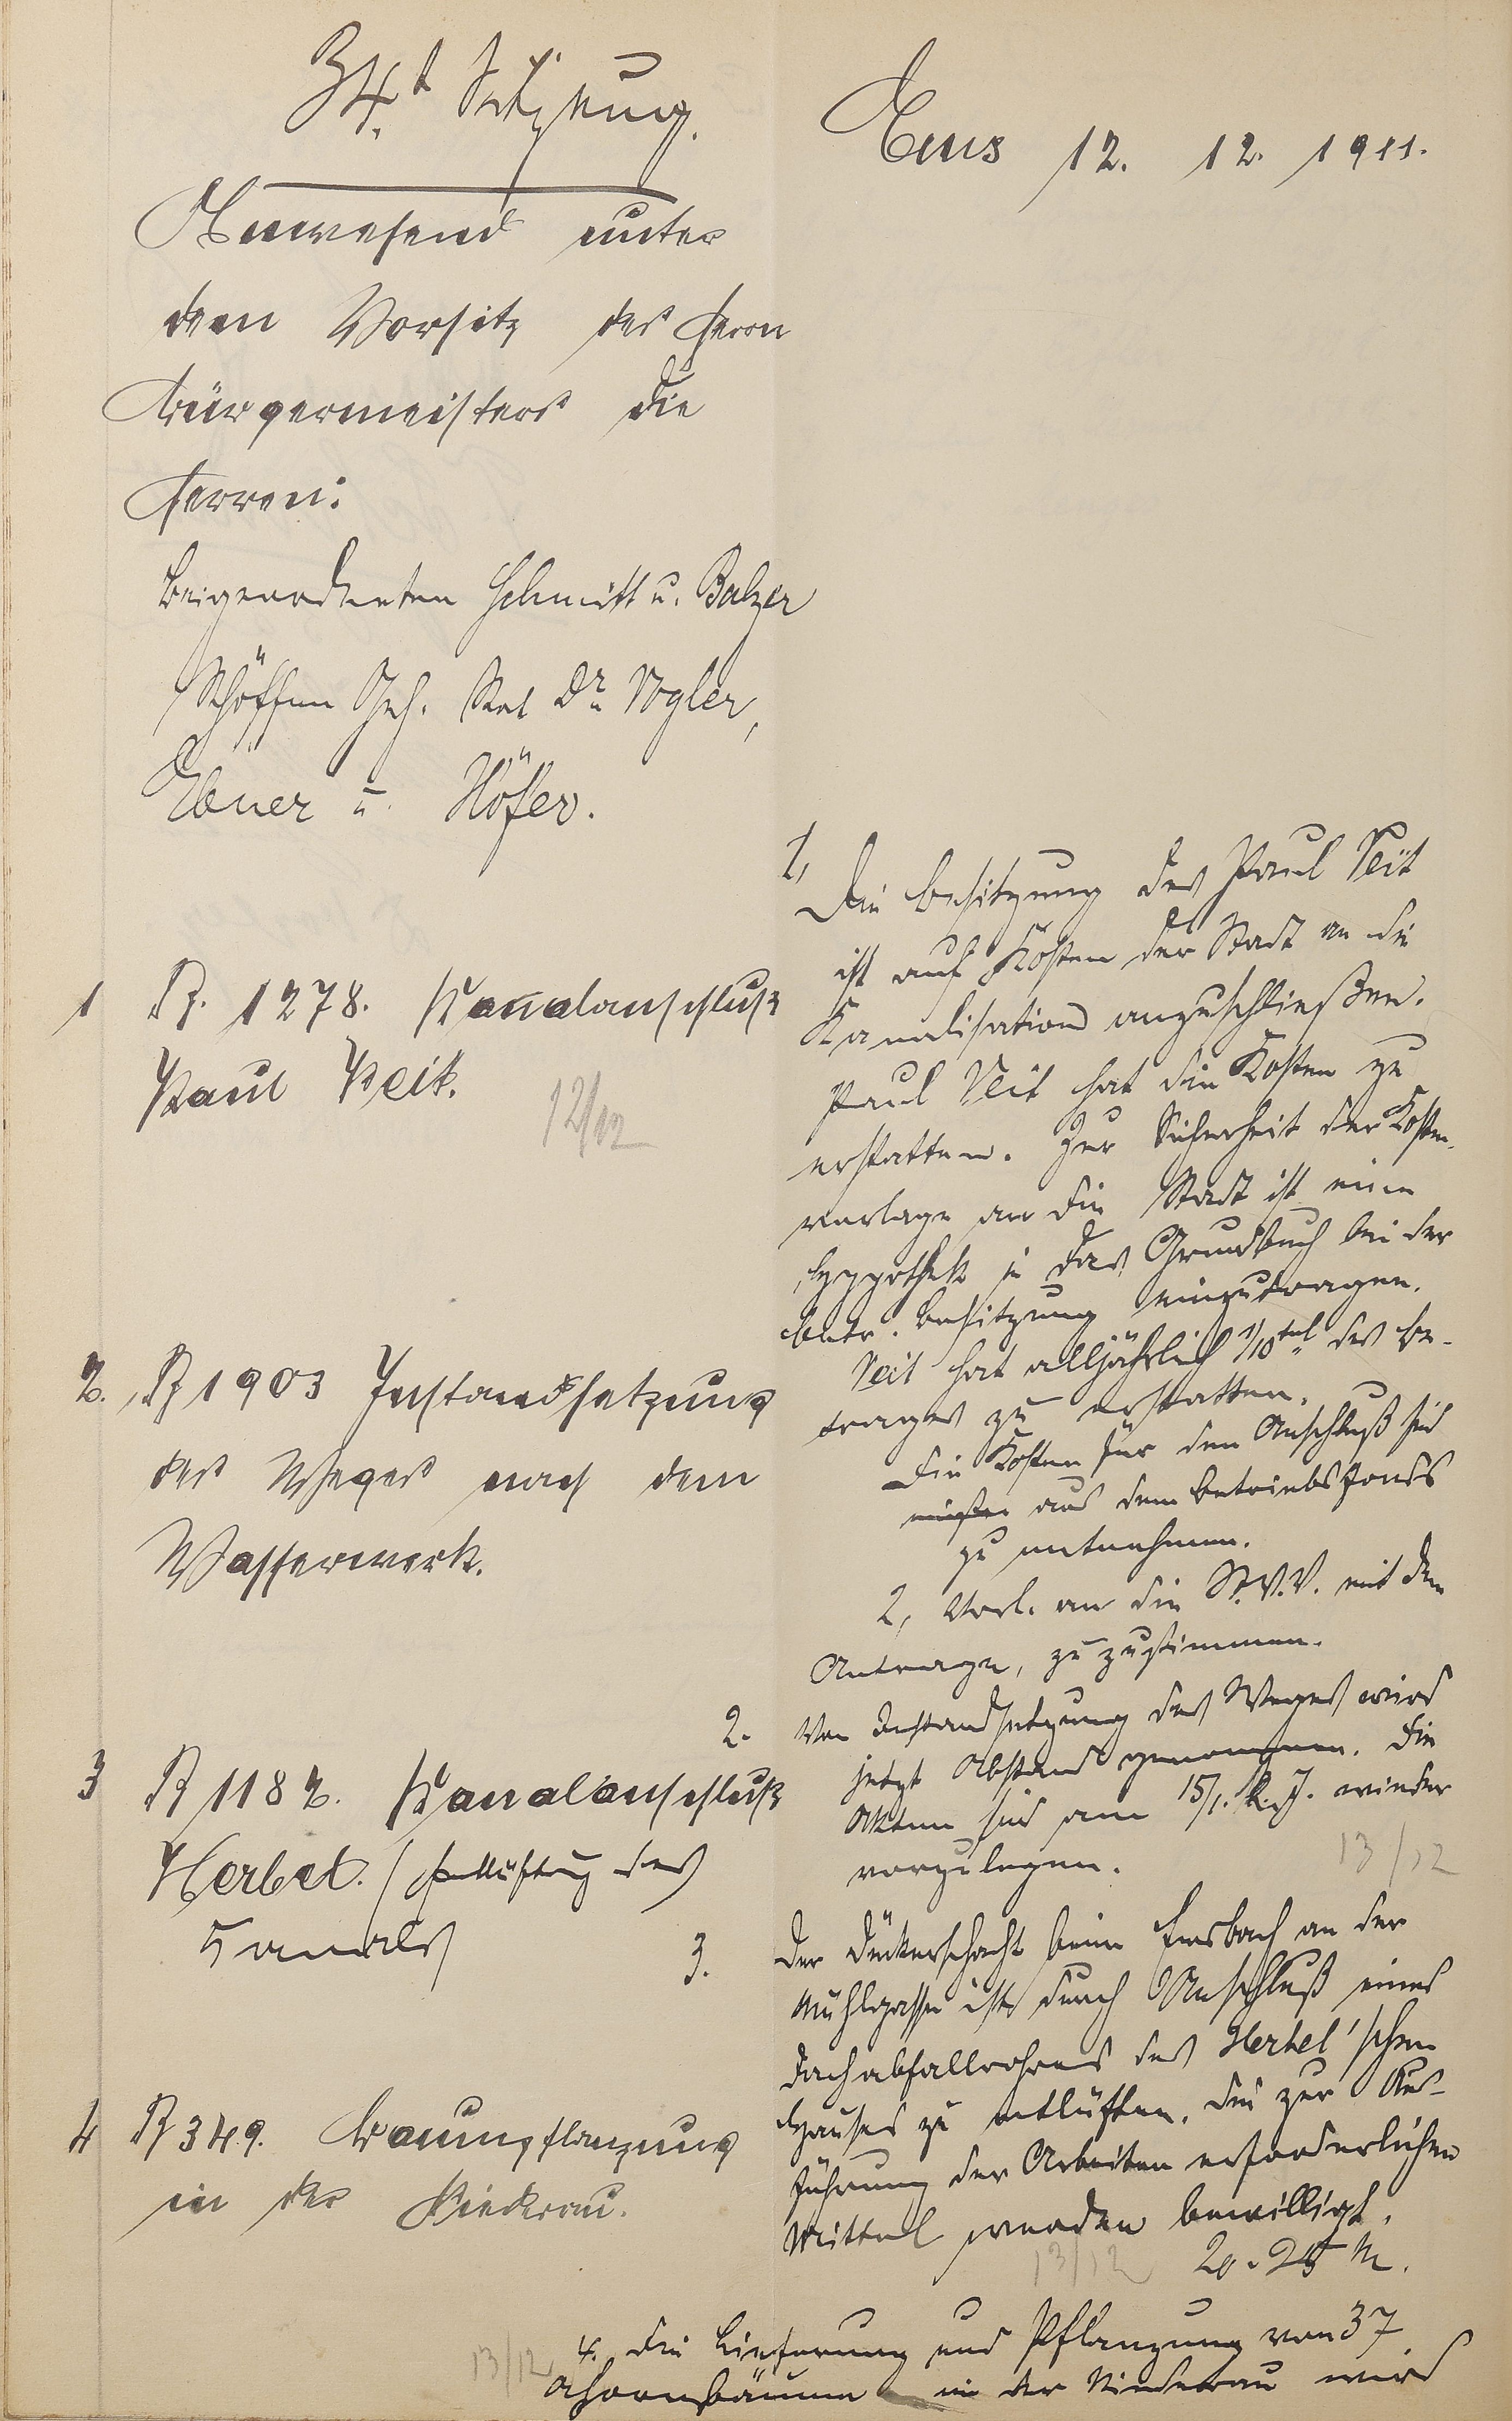 34.t Sitzung.
Ems 12. 12. 1911.
Anwesend unter
dem Vorsitz des Herrn
Bürgermeisters die
Herren:
Beigeordneten Schmitt u. Balzer
Schöffen Geh. Rat Dr. Vogler,
Ebner u. Höfer.
1 R. 1278. Kanalanschluß
Paul Veit.
12/12
1, Die Besitzung des Paul Veit
ist auf Kosten der Stadt an die
Kanalisation anzuschließen.
Paul Veit hat die Kosten zu
erstatten. Zur Sicherheit der Kosten-
vorlage an die Stadt ist eine
Hypothek in das Grundbuch bei der
betr. Besitzung einzutragen.
Veit hat alljährlich 1/10tel des Be-
trages zu erstatten.
Die Kosten für den Anschluß sind
aus dem Betriebsfonds
zu entnehmen.
2, Vorl. an die St.V.V. mit dem
Antrage, zuzustimmen.
2. R 1903 Instandsetzung
des Weges nach dem
Wasserwerk.
2. Von Instandsetzung des Weges wird
jetzt Abstand genommen. Die
Akten sind am 15/1. k. J. wieder
vorzulegen.
13/12
3 R 1182. Kanalanschluß
Herbel. / Entlüftung des
Kanals
3. Der Dückerschacht beim Emsbach an der
Mühlgasse ist durch Anschluß eines
Dachabfallrohres des Herbel'schen
Hauses zu entlüften. Die zur Aus-
führung der Arbeiten erforderlichen
Mittel werden bewilligt.
20-25 M.
13/12
4 R 349. Baumpflanzung
in der Niederau.
13/12
4. Die Lieferung und Pflanzung von 37
Ahornbäume in der Niederau wird